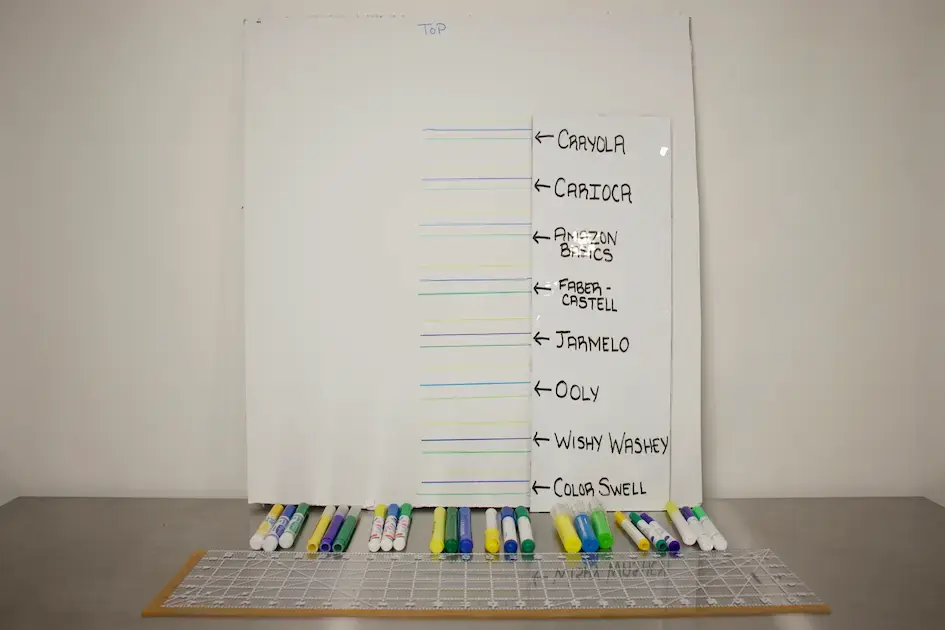 TOP
← CRAYOLA
← CARIOCA
← AMAZON
BASICS
← FABER-
CASTELL
← JARMELO
← OOLY
← WISHY WASHEY
← COLOR SWELL